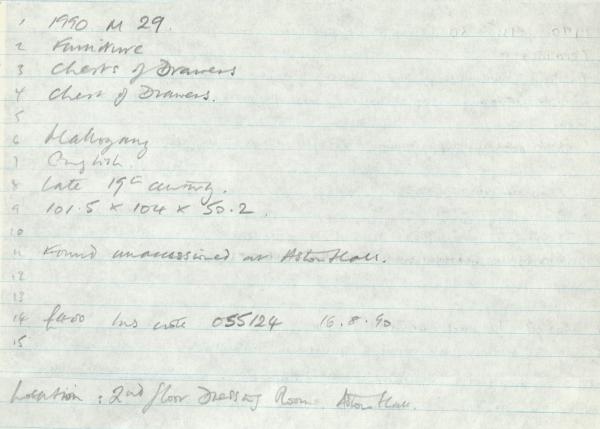 1 1990 M 29.
2 Furniture
3 Chests of Drawers
4 Chest of Drawers.
5
6 Mahogany
7 English.
8 Late 19th century.
9 101.5 x 104 x 50.2.
10
11 Found unaccessioned at Aston Hall.
12
13
14 £400 Ins note 055124 16.8.90
15
Location: 2nd floor Dressing Room. Aston Hall.